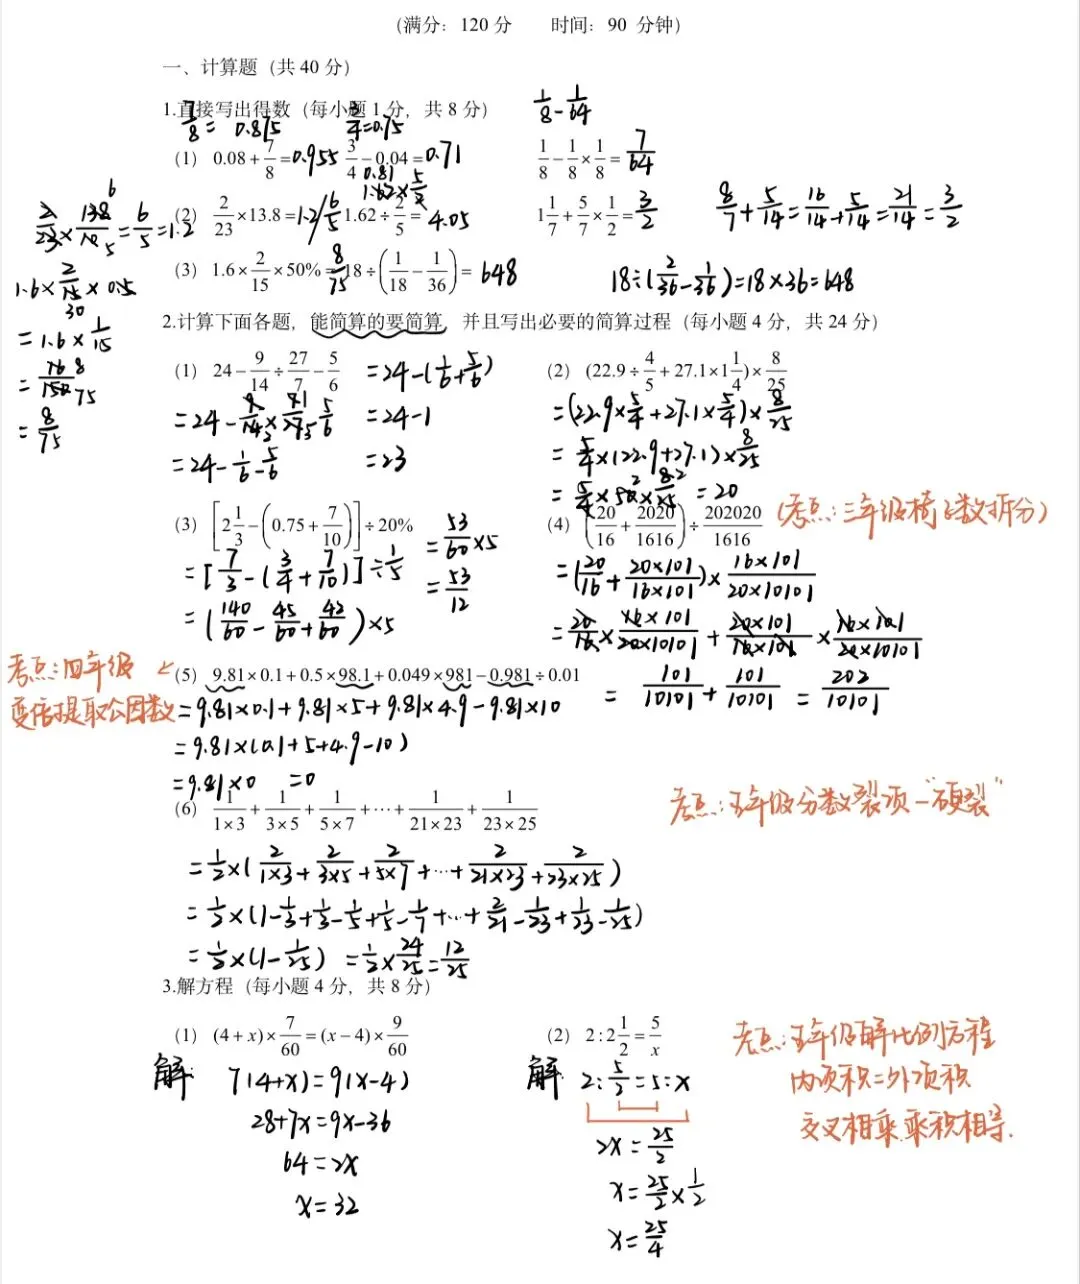 (满分：120 分 时间：90 分钟)
一、计算题（共 40 分）
1.直接写出得数（每小题 1 分，共 8 分）
1/8 - 1/64
7/8 = 0.875 3/4=0.75
(1) 0.08 + 7/8 = 0.955 3/4 - 0.04 = 0.71 1/8 - 1/8 × 1/8 = 7/64
0.81
1.62 × 5/2
(2) 2/23 × 13.8 = 1.2/ 6/5 1.62 ÷ 2/5 = 4.05 1 1/7 + 5/7 × 1/2 = 3/2
8/7 + 5/14 = 16/14 + 5/14 = 21/14 = 3/2
2/23 × 138/10 = 6/5 = 1.2
(3) 1.6 × 2/15 × 50% = 8/75 18 ÷ (1/18 - 1/36) = 648
18÷(2/36 - 1/36)=18×36=648
1.6 × 2/15 × 0.5
= 1.6 × 1/15
= 16/150
= 8/75
2.计算下面各题，能简算的要简算，并且写出必要的简算过程（每小题 4 分，共 24 分）
(1) 24 - 9/14 ÷ 27/7 - 5/6
= 24 - 9/14 × 7/27 - 5/6
= 24 - 1/6 - 5/6
= 24 - (1/6 + 5/6)
= 24 - 1
= 23
(2) (22.9 ÷ 4/5 + 27.1 × 1 1/4) × 8/25
= (22.9 × 5/4 + 27.1 × 5/4) × 8/25
= 5/4 × (22.9 + 27.1) × 8/25
= 5/4 × 50 × 8/25 = 20
(3) [2 1/3 - (0.75 + 7/10)] ÷ 20%
= [7/3 - (3/4 + 7/10)] ÷ 1/5
= (140/60 - 45/60 + 42/60) × 5
= 53/60 × 5
= 53/12
(4) (20/16 + 2020/1616) ÷ 202020/1616
= (20/16 + 20×101/16×101) × 16×101/20×10101
= 20/16 × 16×101/20×10101 + 20×101/16×101 × 16×101/20×10101
= 101/10101 + 101/10101 = 202/10101
(5) 9.81 × 0.1 + 0.5 × 98.1 + 0.049 × 981 - 0.981 ÷ 0.01
考点：四年级
变倍提取公因数
= 9.81×0.1 + 9.81×5 + 9.81×4.9 - 9.81×10
= 9.81×(0.1+5+4.9-10)
= 9.81×0 =0
(6) 1/1×3 + 1/3×5 + 1/5×7 + ··· + 1/21×23 + 1/23×25
考点：五年级分数裂项一"硬裂"
= 1/2 × (2/1×3 + 2/3×5 + 2/5×7 + ··· + 2/21×23 + 2/23×25)
= 1/2 × (1 - 1/3 + 1/3 - 1/5 + 1/5 - 1/7 + ··· + 2/21 - 1/23 + 1/23 - 1/25)
= 1/2 × (1 - 1/25) = 1/2 × 24/25 = 12/25
3.解方程（每小题 4 分，共 8 分）
(1) (4 + x) × 7/60 = (x - 4) × 9/60
解: 7(4+x)=9(x-4)
28+7x=9x-36
64=2x
x=32
(2) 2 : 2 1/2 = 5/x
解: 2 : 5/2 = 5 : x
2x = 25/2
x = 25/2 × 1/2
x = 25/4
考点：五年级解比例方程
内项积=外项积
交叉相乘,乘积相等.